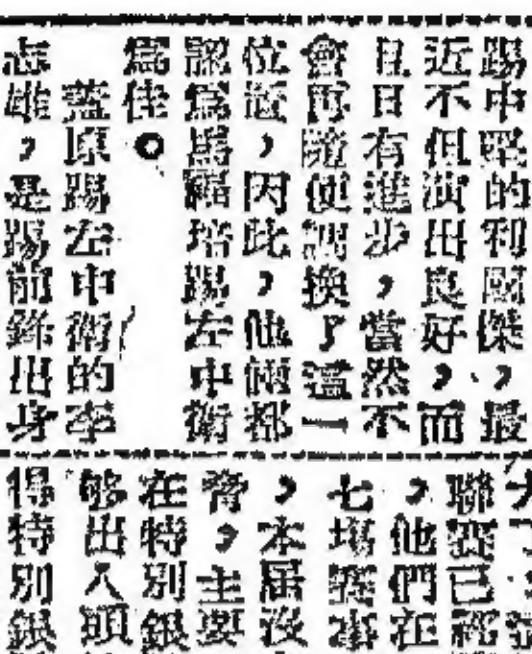 踢中堅的利國傑，最
近不但演出良好，而
且日有進步，當然不
會再隨便調換了這一
位置，因此，他倆都
認爲馬福培踢左中衛
爲佳。
蓋原踢左中衛的李
志雄，是踢前鋒出身
聯賽已經
，他們在
七場賽事
，本屆沒
齊，主要
在特別銀
够出人頭
得特別銀